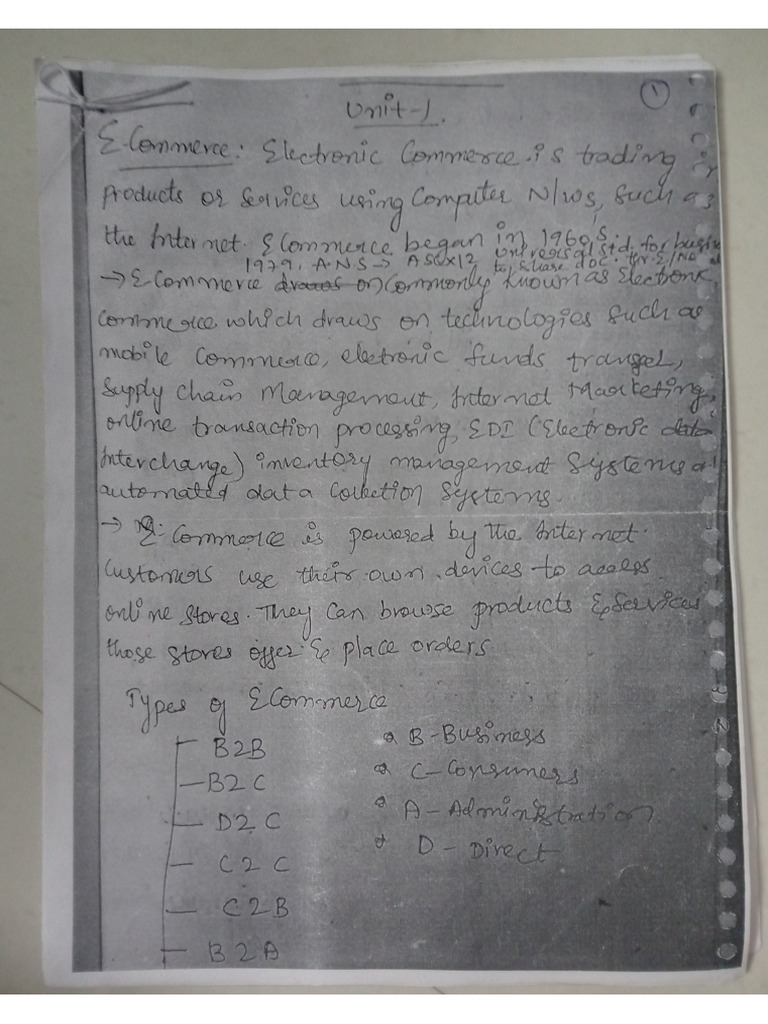 1
Unit-1.
E-Commerce: Electronic Commerce is trading in
Products or Services using Computer N/ws, such as
the Internet. E Commerce began in 1960s.
1979. A.N.S → ASCX12 universal std. for busi
to share doc. thr. E/Ne
→ E-Commerce draws on Commonly known as Electronic,
Commerce which draws on technologies such as
mobile Commerce, eletronic funds
Supply Chain Management, Internet Marketing,
online transaction processing, EDI (Electronic data
Interchange) inventory management Systems
automated data Collection Systems.
→ E-Commerce is powered by the Internet.
Customers use their own devices to access
online stores. They can browse products & Services
those stores offer & place orders
Types of E Commerce
B2B
B2C
D2C
C2C
C2B
B2A
B-Business
C-Consumers
A-Administration
D-Direct